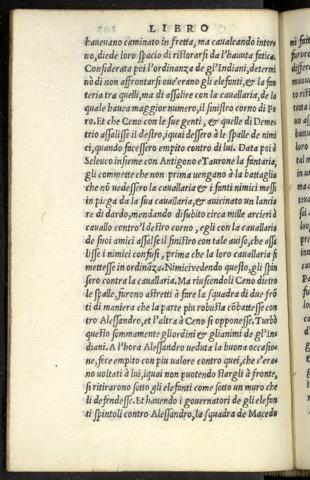 LIBRO
haueuano caminato in fretta, ma caualcando intorn
no, diede loro spacio di ristorarsi da l'hauuta fatica.
Considerata poi l'ordinanza de gl'Indiani, determi
nò di non affrontarsi oue'erano gli elefanti, & la fan
teria tra quelli, ma di assalire con la cauallaria, de la
quale hauea maggior numero, il sinistro corno di Po
ro. Et che Ceno con le sue genti, & quelle di Deme
trio assalisse il destro, i quai dessero à le spalle de nimi
ci, quando facessero empito contro di lui. Data poi à
Seleuco insieme con Antigono e Taurone la fantaria,
gli commette che non prima uengano à la battaglia
che nõ uedessero la cauallaria & i fanti nimici messi
in piega da la sua cauallaria, & auicinato un lancia
re di dardo, mandando di subito circa mille arcieri à
cauallo contro'l destro corno, egli con la cauallaria
de suoi amici assalse il sinistro con tale auiso, che assa
lisse i nimici confusi, prima che la loro cauallaria si
mettesse in ordinãza. Nimici vedendo questo, gli spin
sero contra la cauallaria. Ma riuscendoli Ceno dietro
le spalle, furono astretti à fare la squadra di due frõ
ti di maniera che la parte piu robusta cõbattesse con
tro Alessandro, et l'altra à Ceno si opponesse. Turbò
questo sommamente gli ordini & gli animi de gl'In
diani. A l'hora Alessandro veduta la buona occasio
ne, fece empito con piu valore contro quei, che s'era
no uoltati à lui, i quai non puotendo stargli à fronte,
si ritirarono sotto gli elefanti come sotto un muro che
li defendesse. Et hauendo i gouernatori de gli elefan
ti spintoli contro Alessandro, la squadra de Macedo